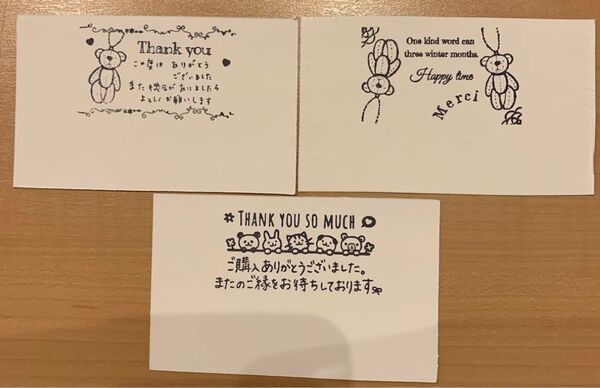 Thank you
この度は ありがとう
ございました
また機会がありましたら
よろしくお願いします
One kind word can
three winter months.
Happy time
Merci
THANK YOU SO MUCH
ご購入ありがとうございました。
またのご縁をお待ちしております